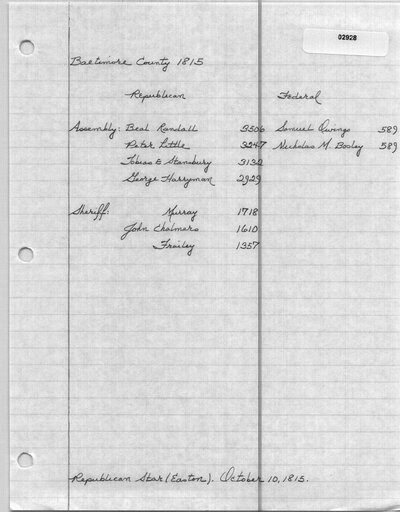 02928
Baltimore County 1815
Republican Federal
Assembly: Beal Randall 3306 Samuel Owings 589
Peter Little 3247 Nicholas M. Bosley 589
Tobias E Stansbury 3132
George Harryman 2929
Sheriff: Murray 1718
John Chalmers 1610
Frailey 1357
Republican Star (Easton). October 10, 1815.